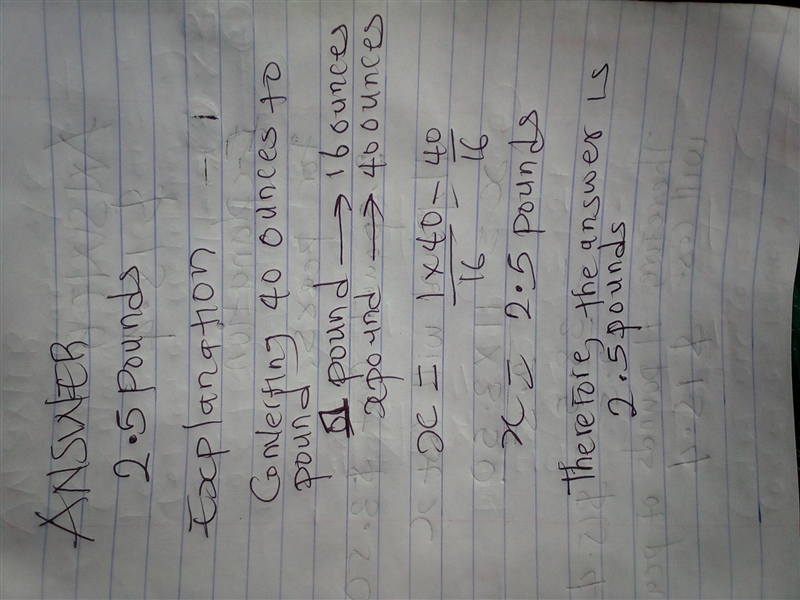 ANSWER
2.5 pounds
Explanation
Converting 40 ounces to
pound
1 pound → 16 ounces
x pound → 40 ounces
x = 1 x 40 = 40
16 16
x = 2.5 pounds
Therefore, the answer is
2.5 pounds